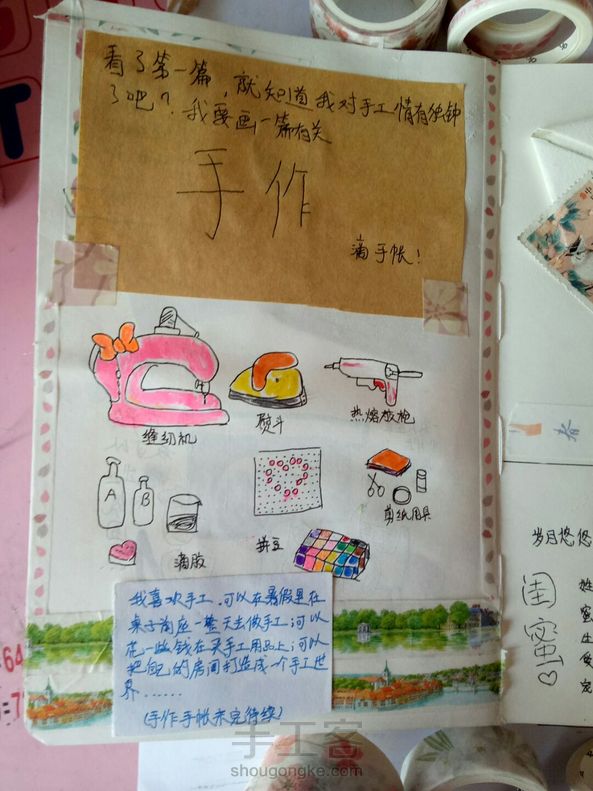 看了第一篇，就知道我对手工情有独钟
了吧？我要画一篇有关
手作
滴手帐！
缝纫机
熨斗
热熔胶枪
A
B
滴胶
拼豆
剪纸用具
我喜欢手工，可以在暑假里在
桌子前座一整天去做手工，可以
花一些钱在买手工用品上，可以
把自己的房间打造成一个手工世
界……
(手作手帐未完待续)
春
岁月悠悠
闺蜜
手工客
shougongke.com